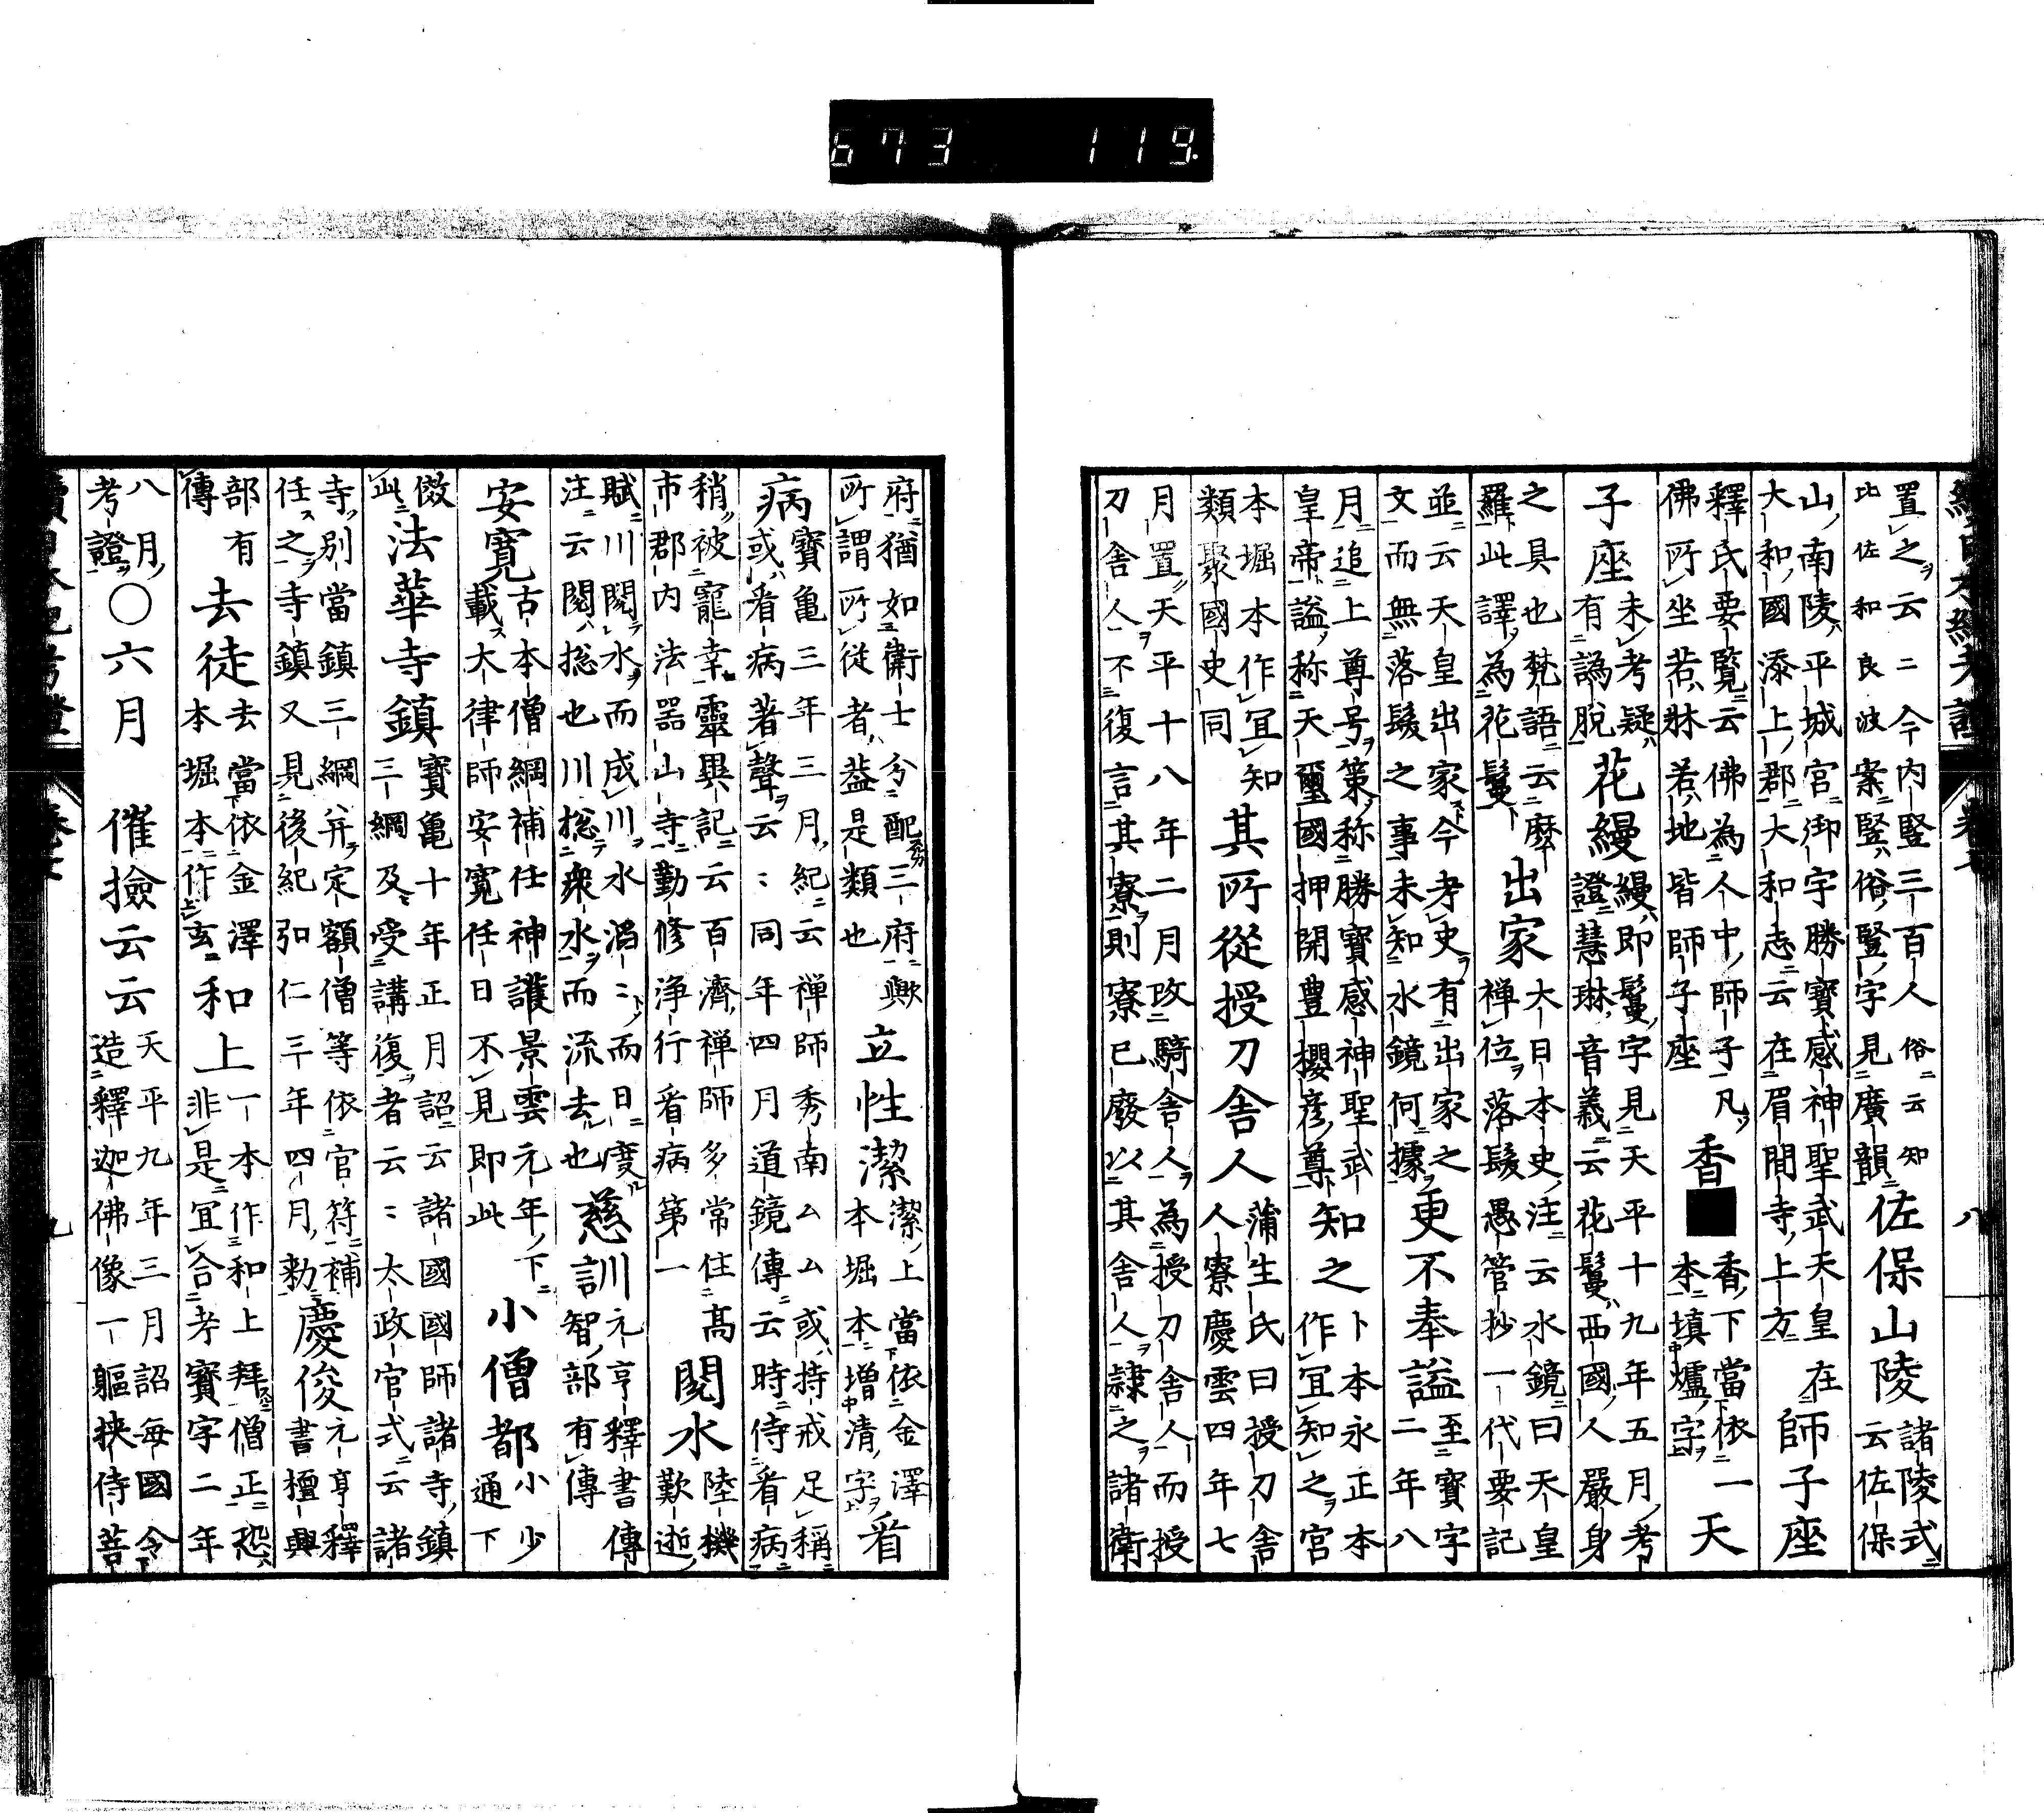 673 119.
八
置之云二今内豎三百人俗云知
比佐和良波案豎俗豎字見廣韻
佐保山陵
諸陵式
云佐保
山南陵平城宮御宇勝寶感神聖武天皇在
大和國添上郡大和志云在眉間寺上方
師子座
釋氏要覽云佛為人中師子凡
佛所坐若牀若地皆師子座
香■
香下當依一
本填爐字
天
子座
未考疑
有譌脫
花縵
縵即鬘字見天平十九年五月考
證慧琳音義云花鬘西國人嚴身
之具也梵語云摩
羅此譯為花鬘
出家
大日本史注云水鏡曰天皇
禅位落髮愚管抄一代要記
並云天皇出家今考史有出家之
文而無落髮之事未知水鏡何據
更不奉謚
至寶字
二年八
月追上尊号策称勝寶感神聖武
皇帝謚称天璽國押開豊櫻彦尊
知之
卜本永正本
作宜知之宮
本堀本作宜知
類聚國史同
其所從授刀舎人
蒲生氏曰授刀舎
人寮慶雲四年七
月置天平十八年二月改騎舎人為授刀舎人而授
刀舎人不復言其寮則寮已廢以其舎人隷之諸衛
府猶如衛士分配三府歟
所謂所従者葢是類也
立性潔
潔上當依金澤
本堀本増清字
看
病
寶亀三年三月紀云禅師秀南ムム或持戒足稱
或看病著聲云々同年四月道鏡傳云時侍看病
稍被寵幸靈異記云百濟禅師多常住高
市郡内法器山寺勤修浄行看病第一
閲水
陸機
歎逝
賦川閲水而成川水滔々而日度
注云閲揔也川揔衆水而流去也
慈訓
元亨釋書傳
智部有傳
安寛
古本僧綱補任神護景雲元年下
載大律師安寛任日不見即此
小僧都
小少
通下
倣
此
法華寺鎮
寶亀十年正月詔云諸國國師諸寺鎮
三綱及受講復者云々太政官式云諸
寺別當鎮三綱并定額僧等依官符補
任之寺鎮又見後紀弘仁三年四月勅
慶俊
元亨釋
書檀興
部有
傳
去徒
去當依金澤
本堀本作玄
和上
一本作和上拜僧正恐
非是宜合考寶字二年
八月
考證
〇六月 催撿云云
天平九年三月詔毎國令
造釋迦佛像一軀挾侍菩
九